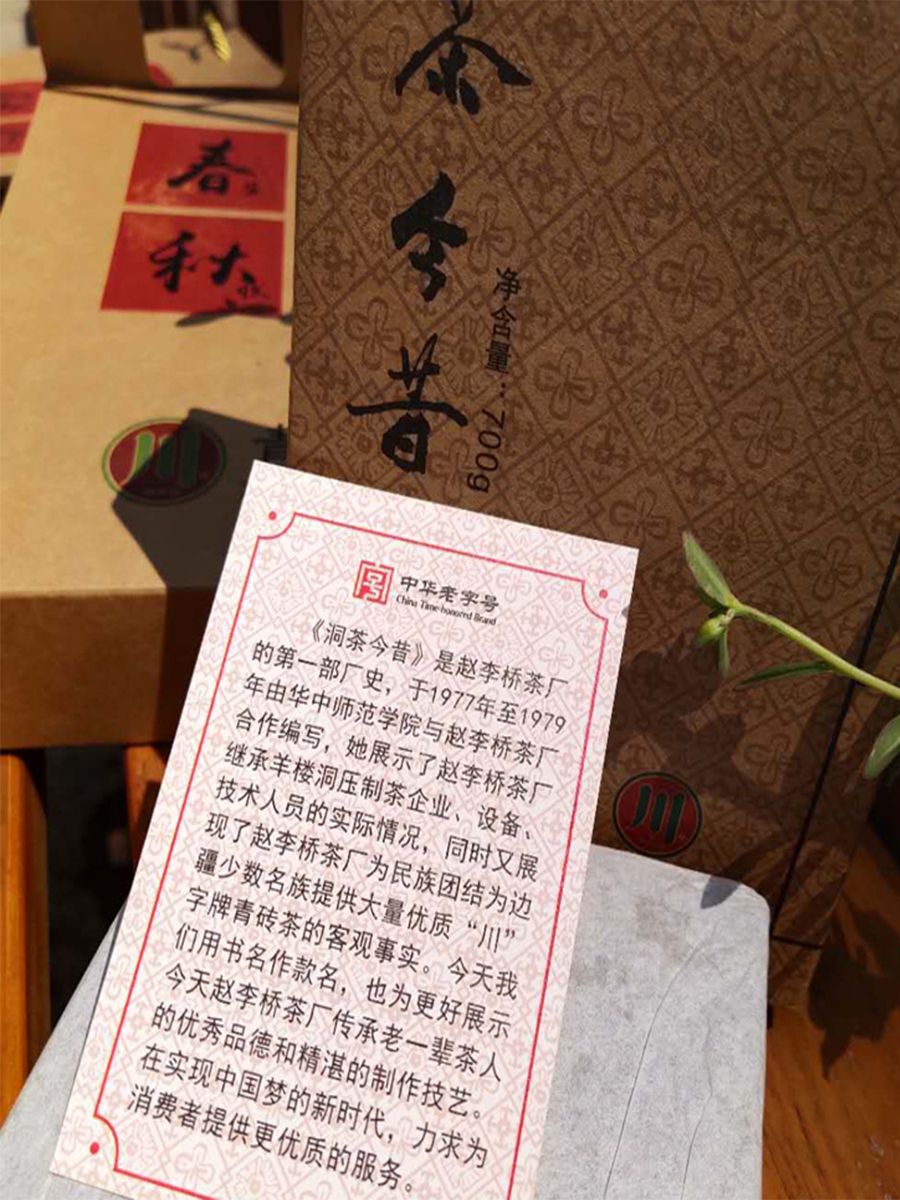 茶今昔
净含量：700g
春
秋
川
中华老字号
China Time-honored Brand
《洞茶今昔》是赵李桥茶厂
的第一部厂史，于1977年至1979
年由华中师范学院与赵李桥茶厂
合作编写，她展示了赵李桥茶厂
继承羊楼洞压制茶企业、设备、
技术人员的实际情况，同时又展
现了赵李桥茶厂为民族团结为边
疆少数名族提供大量优质“川”
字牌青砖茶的客观事实。今天我
们用书名作款名，也为更好展示
今天赵李桥茶厂传承老一辈茶人
的优秀品德和精湛的制作技艺。
在实现中国梦的新时代，力求为
消费者提供更优质的服务。
川